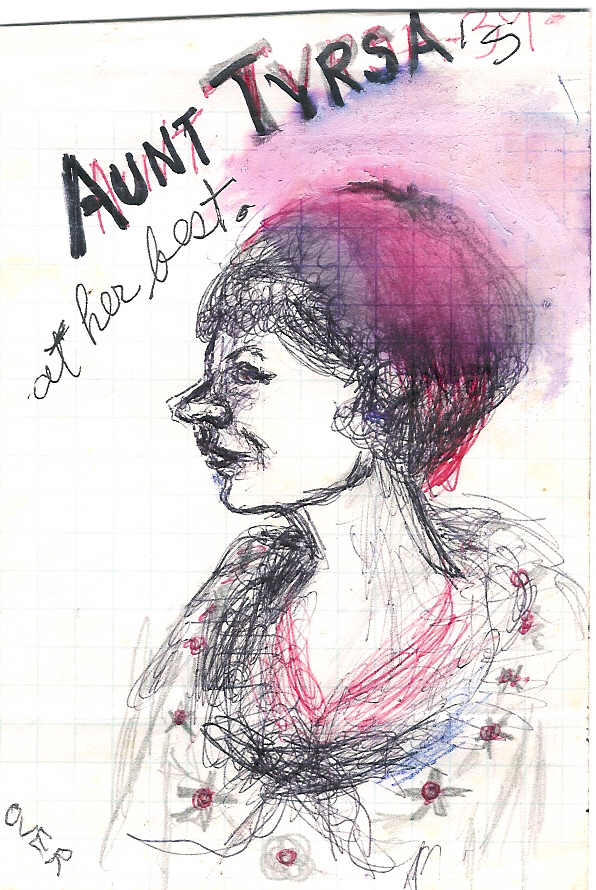 AUNT TYRSA
at her best.
OVER